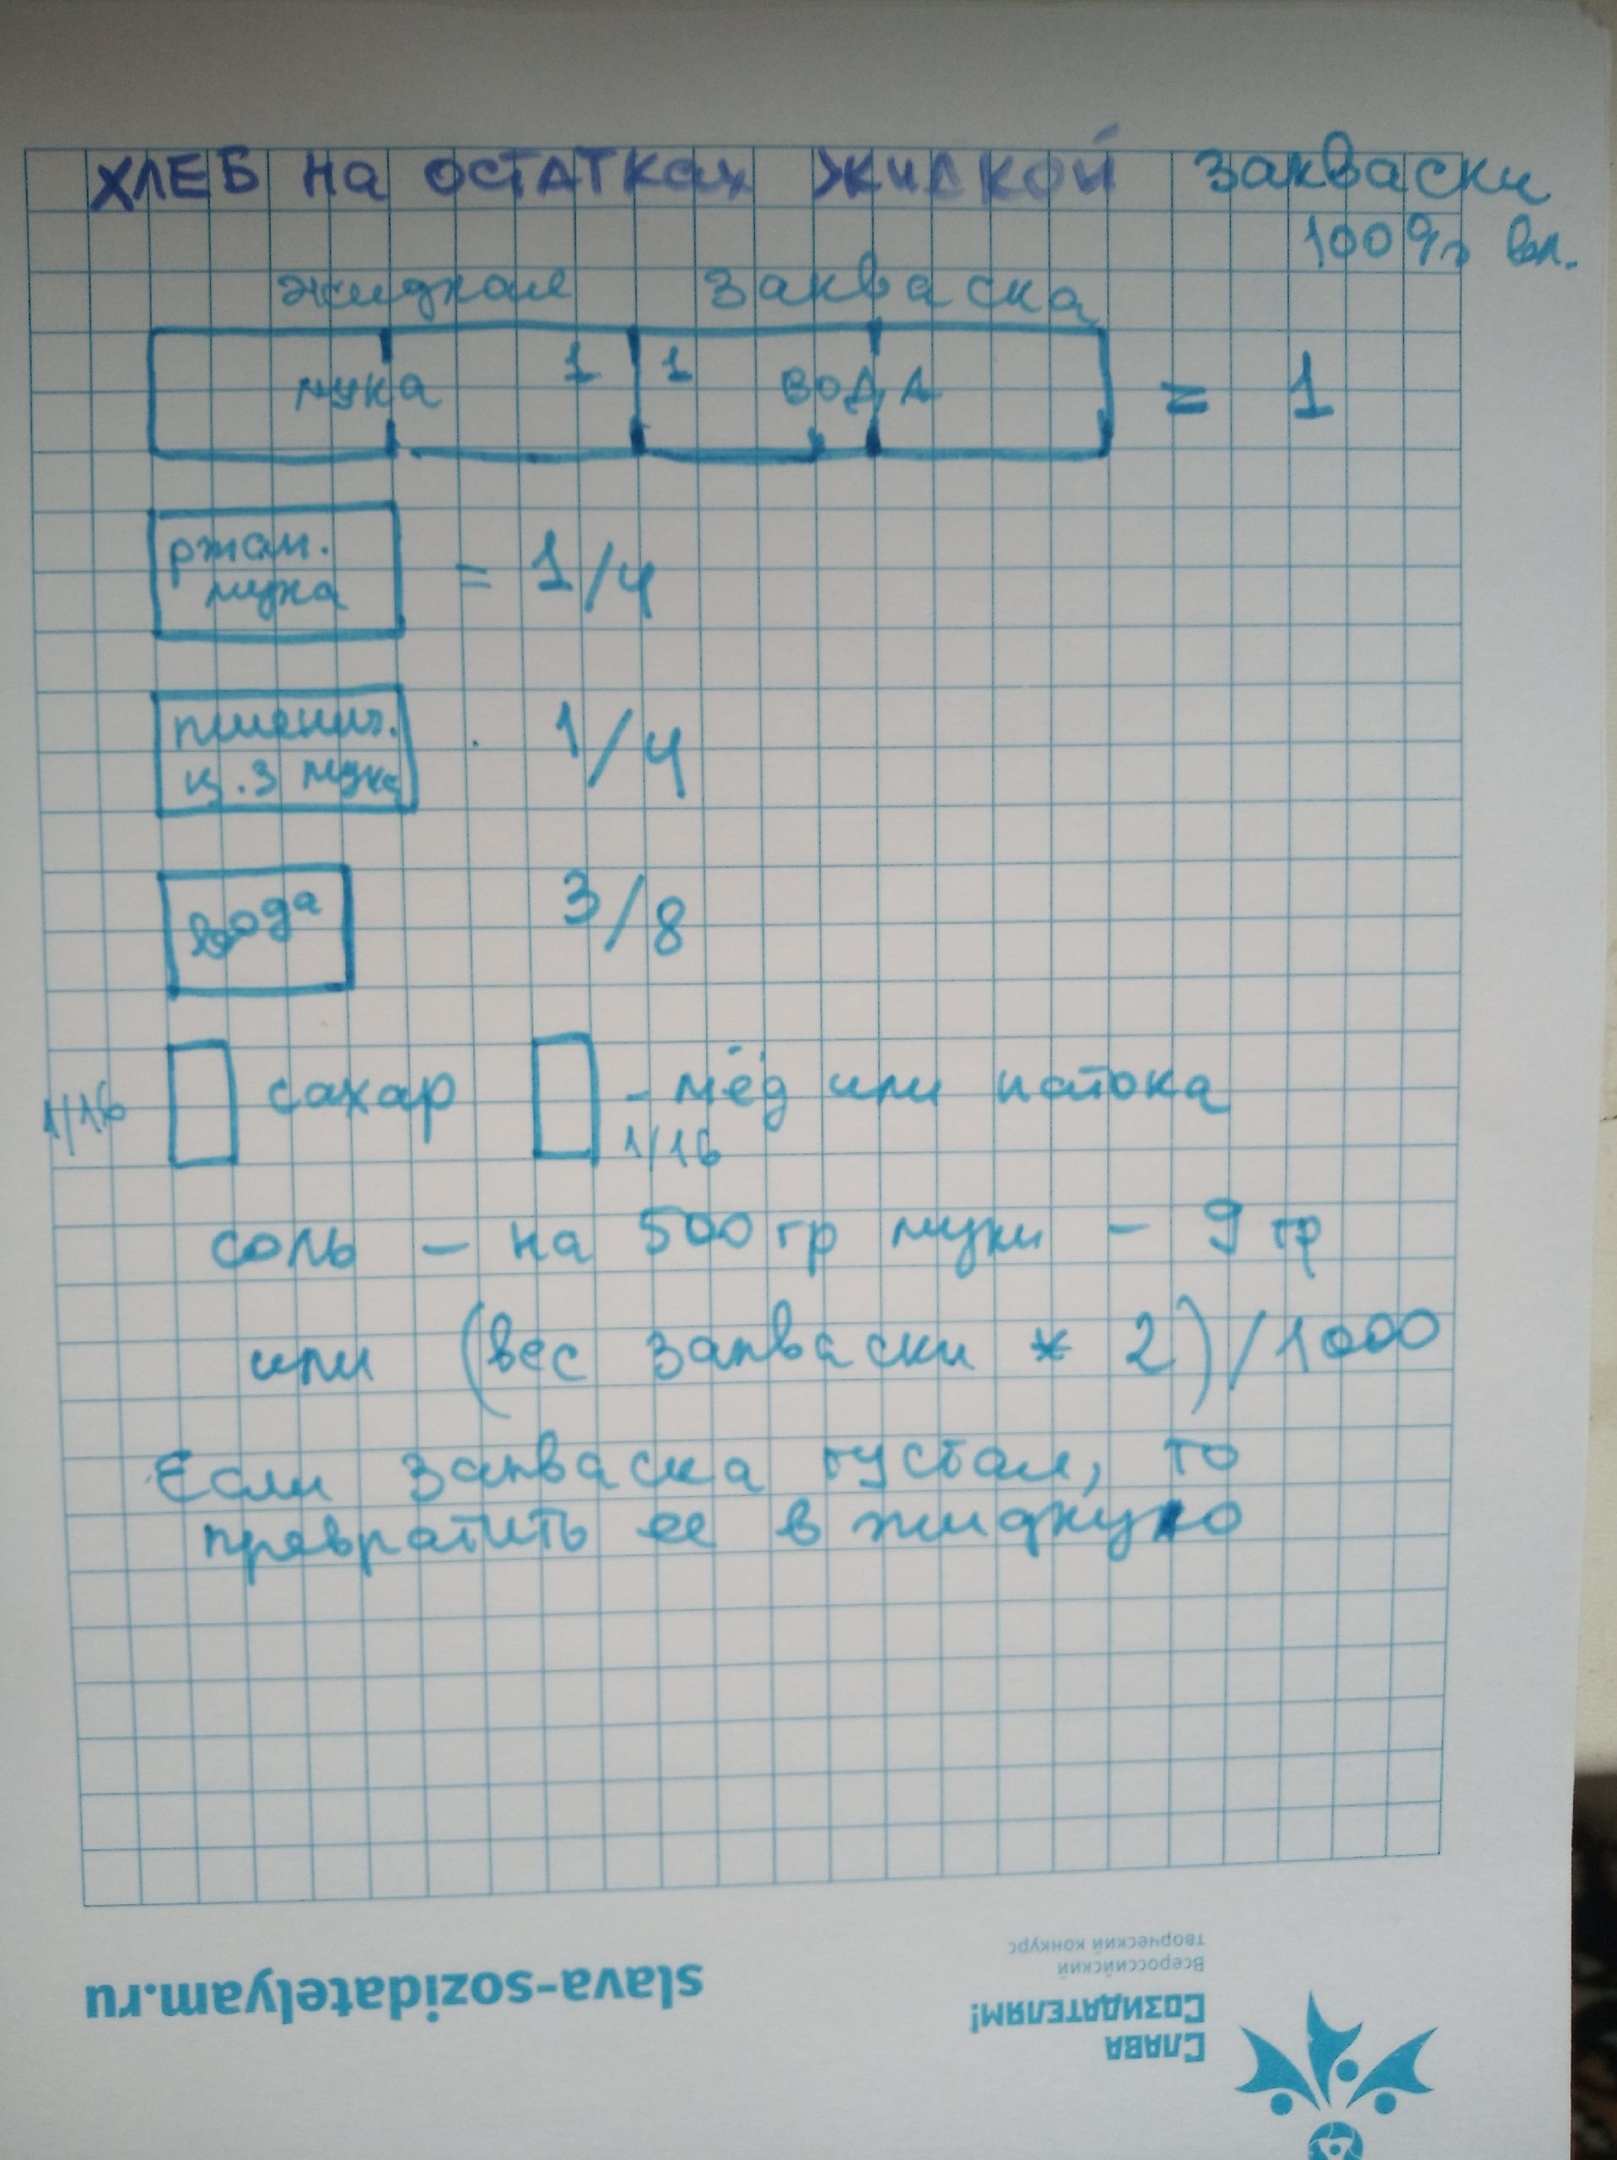 ХЛЕБ На ОСТАТКах ЖИДКОЙ Закваски
100% вл.
жидкая закваска
мука 1 1 ВОДА = 1
ржан.
мука = 1/4
пшенич.
ц.з мука 1/4
вода 3/8
1/16 сахар - мёд или патока
1/16
соль - на 500 гр муки - 9 гр
или (вес закваски * 2)/1000
Если закваска густая, то
превратить ее в жидкую
slava-sozidatelyam.ru
СЛАВА
СОЗИДАТЕЛЯМ!
Всероссийский
творческий конкурс